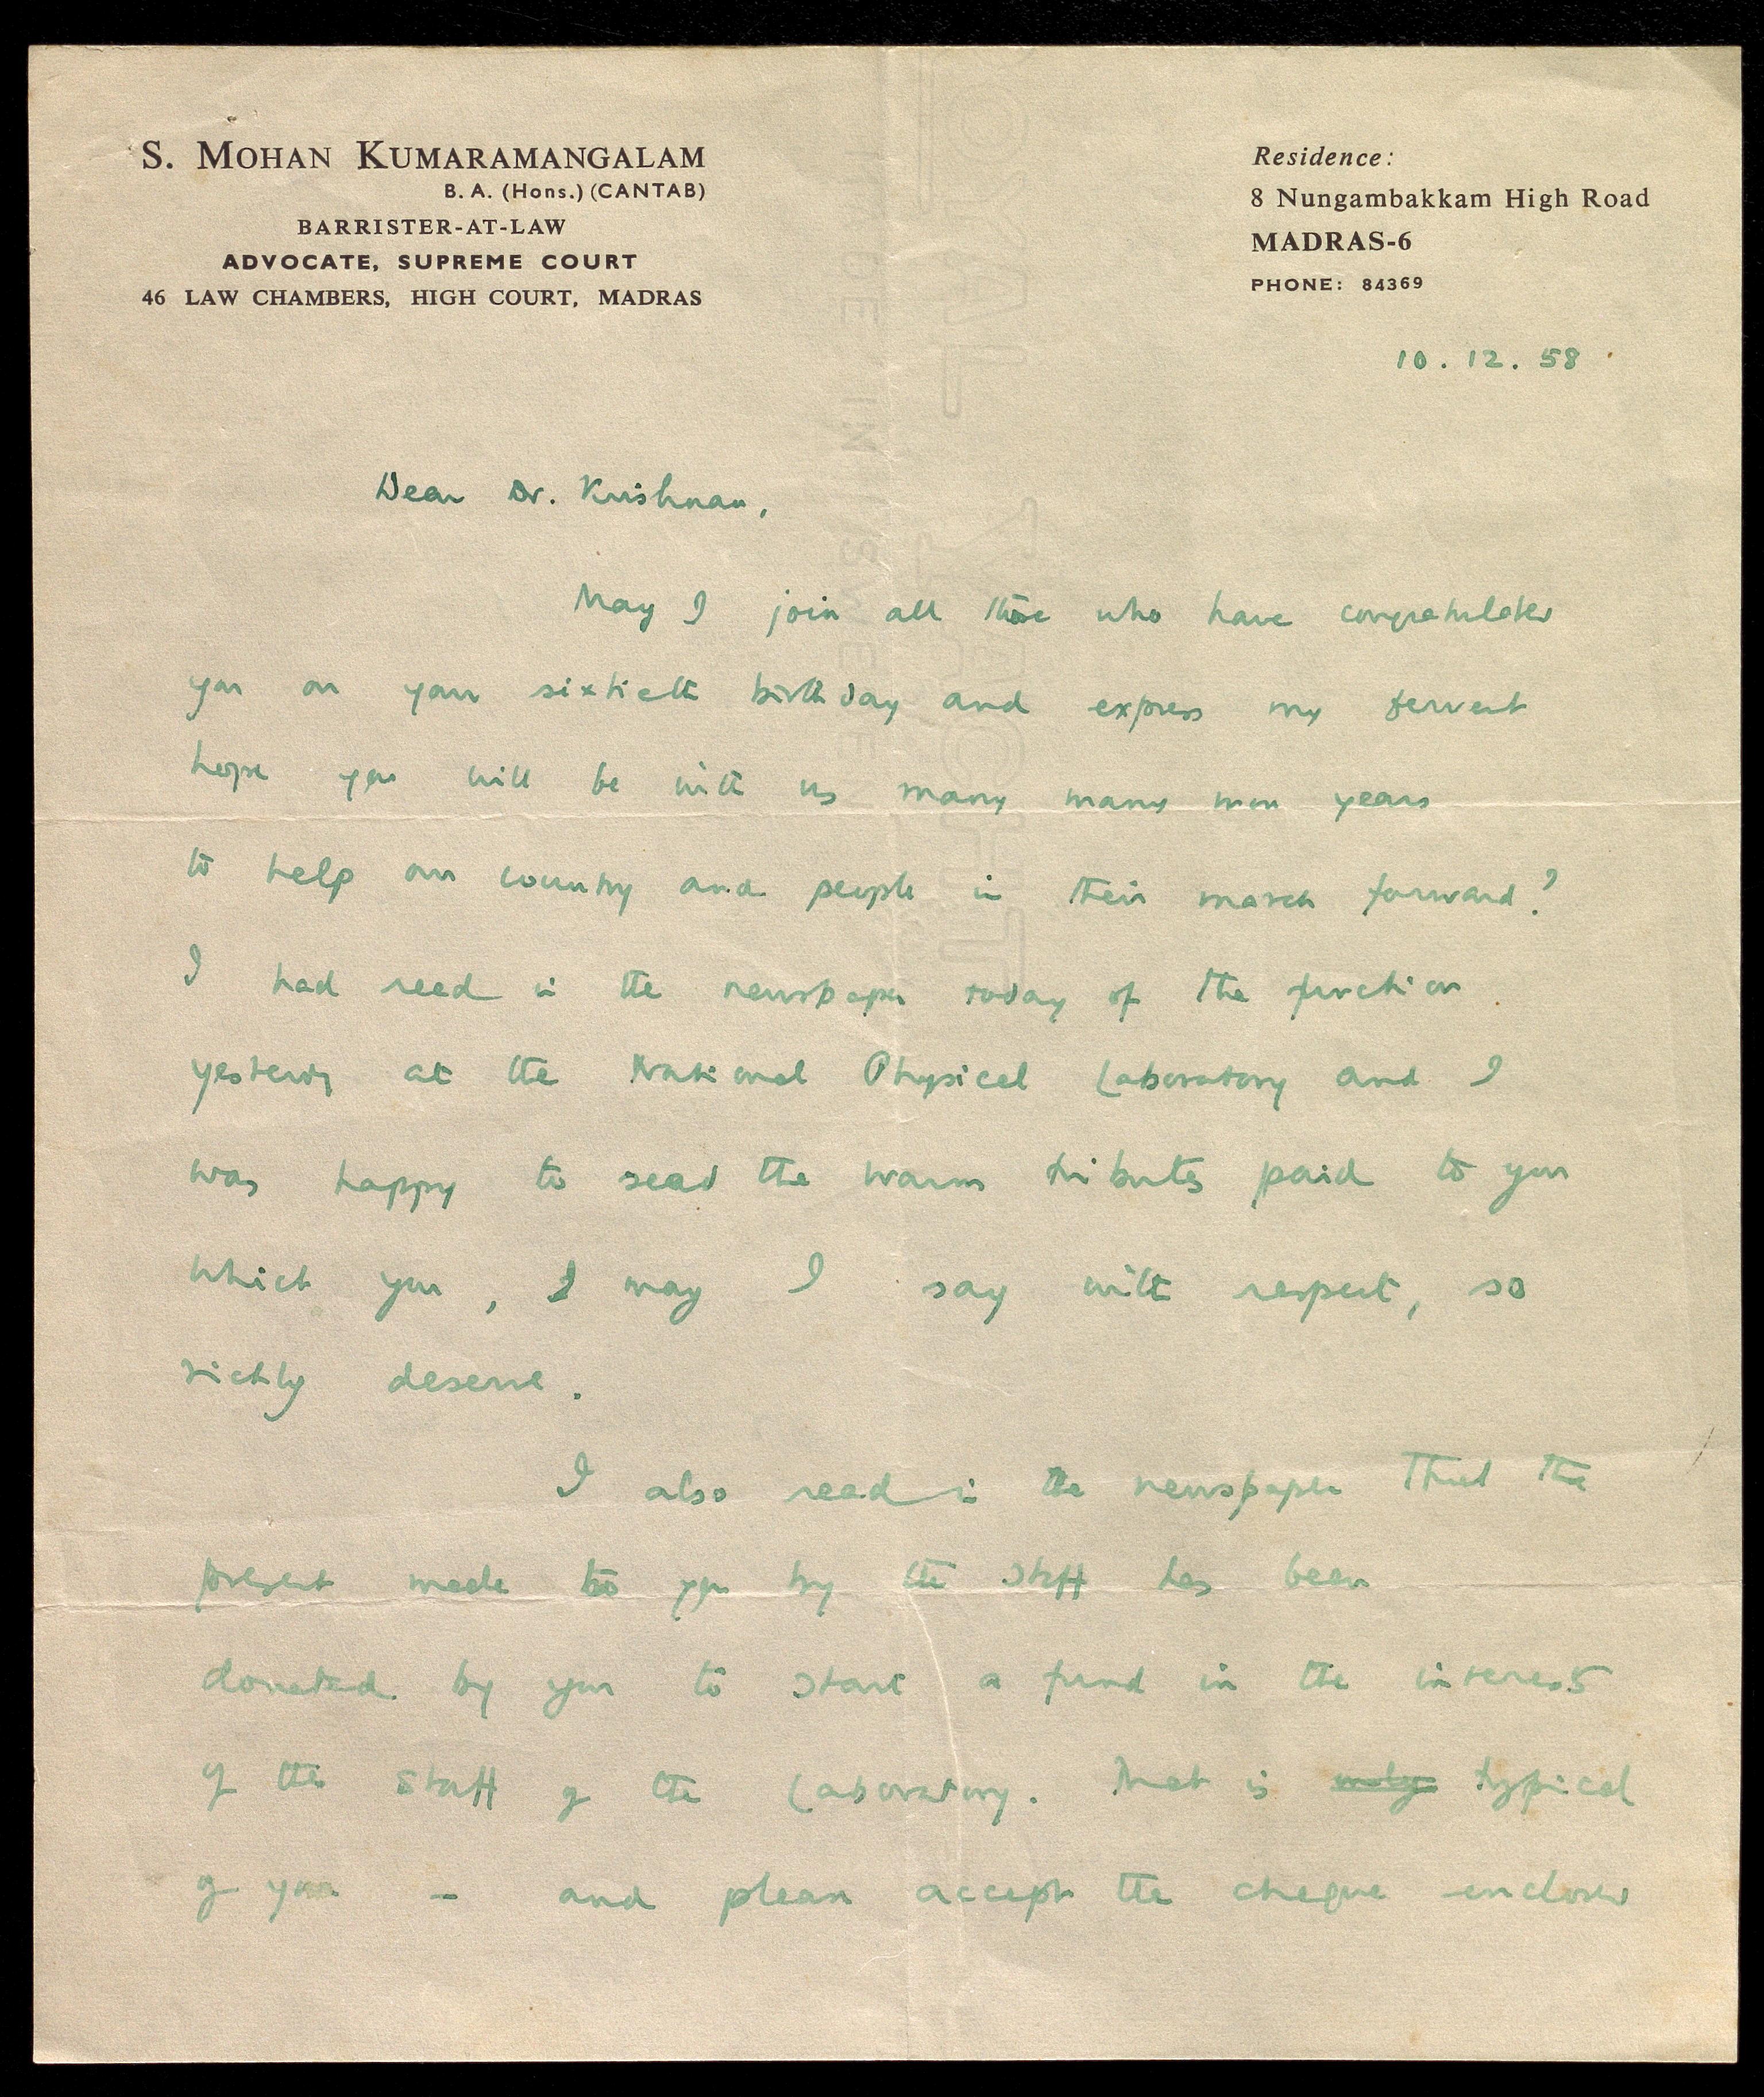 S. MOHAN KUMARAMANGALAM
B. A. (Hons.) (CANTAB)
BARRISTER-AT-LAW
ADVOCATE, SUPREME COURT
46 LAW CHAMBERS, HIGH COURT, MADRAS
Residence:
8 Nungambakkam High Road
MADRAS-6
PHONE: 84369
10. 12. 58
Dear Dr. Krishnan,
May I join all those who have congratulated
you on your sixtieth birthday and express my fervent
hope you will be with us many many more years
to help our country and people in their march forward?
I had read in the newspaper today of the function
yesterday at the National Physical Laboratory and I
was happy to read the warm tributes paid to you
which you, may I say with respect, so
richly deserve.
I also read in the newspaper that the
present made to you by the staff has been
donated by you to start a fund in the interests
of the staff of the Laboratory. That is typical
of you - and please accept the cheque enclosed